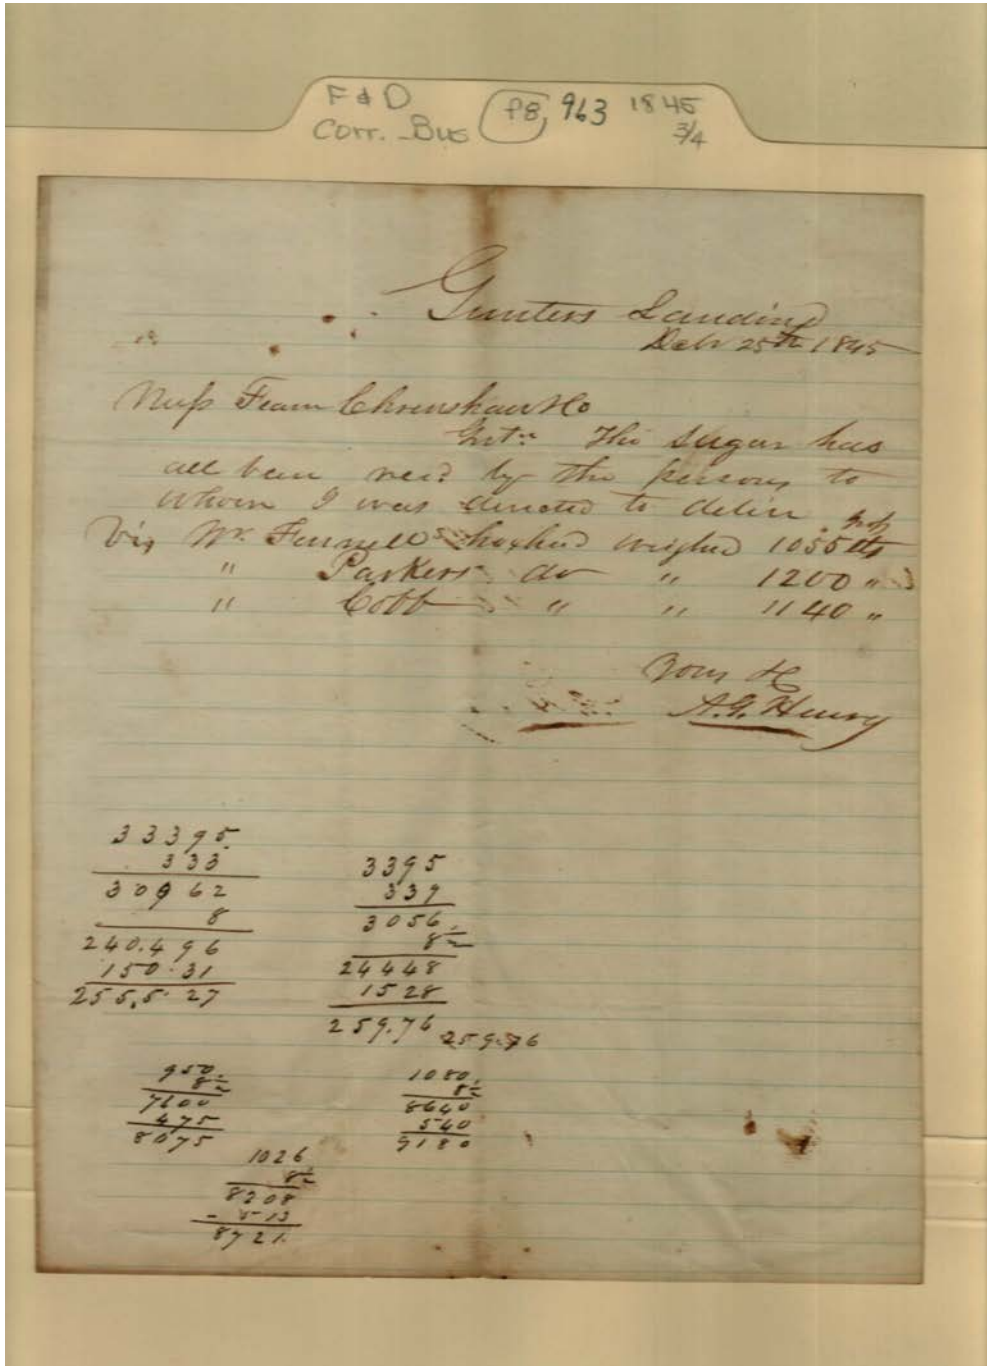 F & D
Corr. - Bus P8, 963 1845
3/4
Gunters Landing
Decr 25th 1845
Mess Fearn Chrenshaw & Co
Gntn The Sugar has
all been recd by the persons to
whom I was directed to deliver
Viz Mr Fennells hoghed weighed 1055 lbs
" Parkers do " 1200 "
" Cobb " " 1140 "
Yours &c
A.G. Henry
33395.
333
30962
8
240.496
150.31
255,5.27
3395
339
3056
8½
24448
1528
259.76 259.76
950
8½
7600
475
8075
1080
8½
8640
540
9180
1026
8½
8208
- 513
8721.